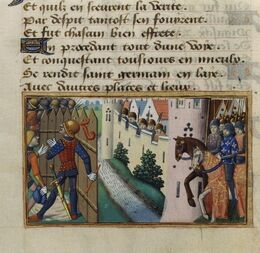 Et quilz en sceurent la verite
Par despit tantost sen fouyrent
Et fut chascun bien effrete
En procedant tout dune voye
Et conquestant tousiours en
Se rendit saint germain en laye
Avec dautres places et lieux